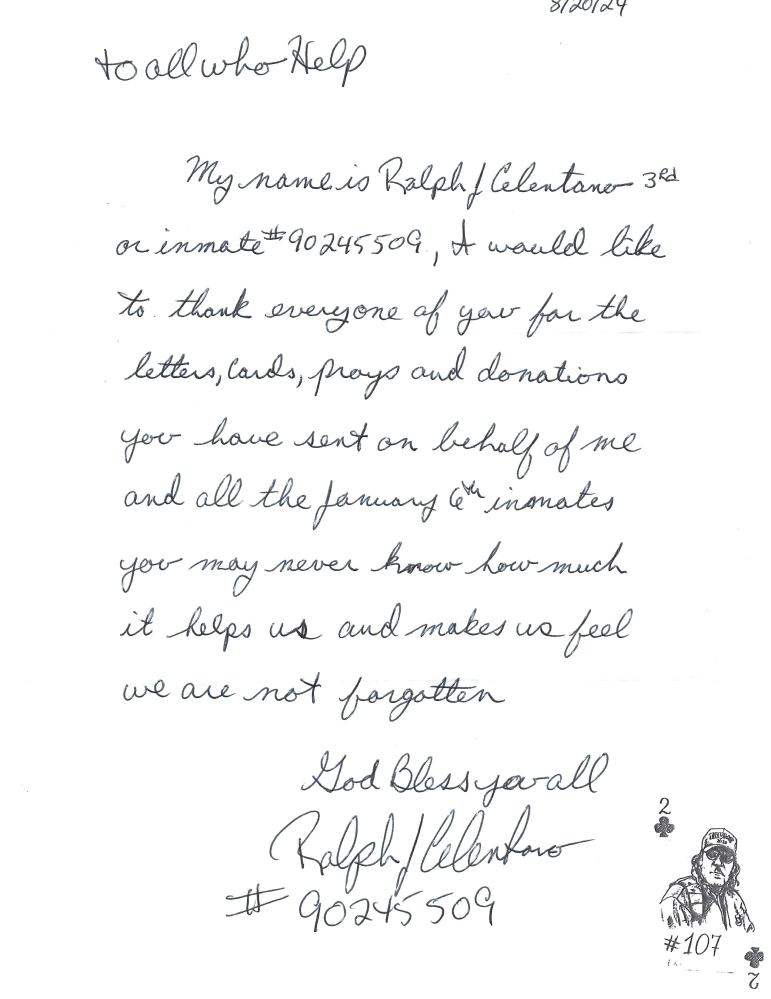 8/20/24
to all who Help
My name is Ralph J Celentano 3rd
or inmate #90245509, I would like
to thank everyone of you for the
letters, Cards, prays and donations
you have sent on behalf of me
and all the January 6th inmates
you may never know how much
it helps us and makes us feel
we are not forgotten
God Bless you all
Ralph J Celentano
# 90245509
2
#107
2